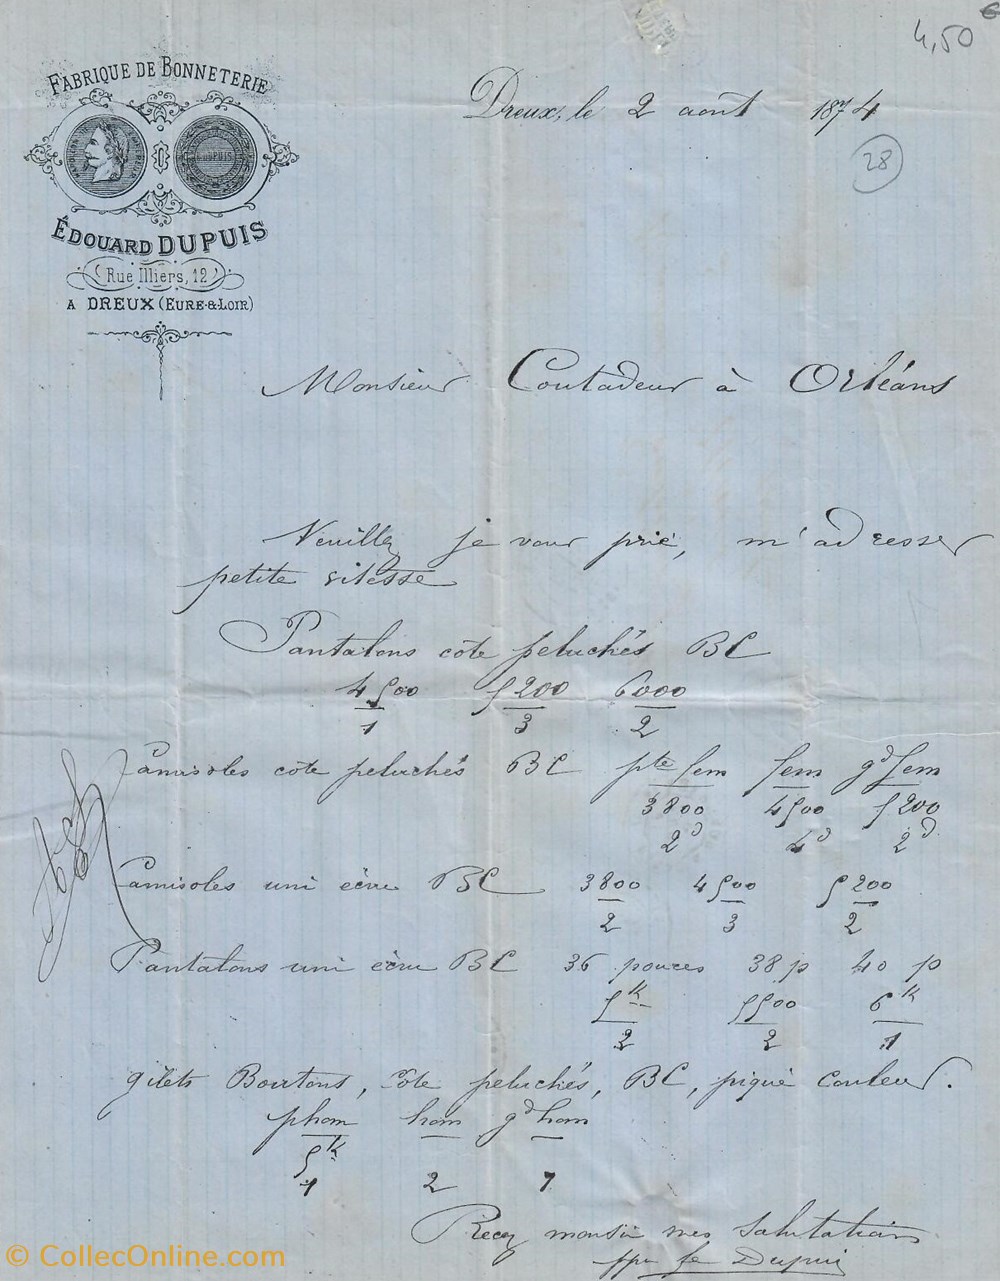 4,50 €
FABRIQUE DE BONNETERIE
DUPUIS
ÉDOUARD DUPUIS
Rue Illiers, 12
A DREUX (EURE-&-LOIR)
Dreux, le 2 aout 1874
28
Monsieur Coutadeur à Orléans
Veuillez je vous prie, m'adresser
petite vitesse
Pantalons côte peluchés BC
4500 5200 6000
1 3 2
Camisoles côte peluchés BC pte fem fem gd fem
3800 4500 5200
2d 4d 2d
Camisoles uni écru BC 3800 4500 5200
2 3 2
Pantalons uni écru BC 36 pouces 38 p 40 p
5k 5500 6k
2 2 1
gilets Boutons, côte peluchés, BC, piqué couleur.
phom hom gd hom
5k
1 2 1
Recez monsieur mes salutations
Dupuis
© CollecOnline.com